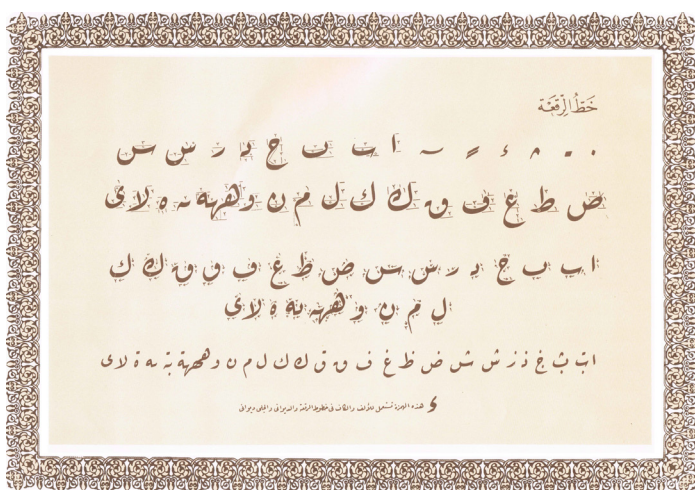 خط الرقعة
ا ب ب ح د ر س س
ص ط ع ف ق ك ك ل م ن و ههه ـه ه لا ى
ا ب ب ج د ر س س ص ط ع ف ق ق ك ك
ل م ن و ههه ية ة لا ى
ا ب ث ج ذ ز ش ش ض ظ غ ف ق ق ك ك ل م ن و ههههة ية ـه ة لا ى
ء هذه الهمزة تستعمل للألف والكاف فى خطوط الرقعة والديوانى والجلى ديوانى